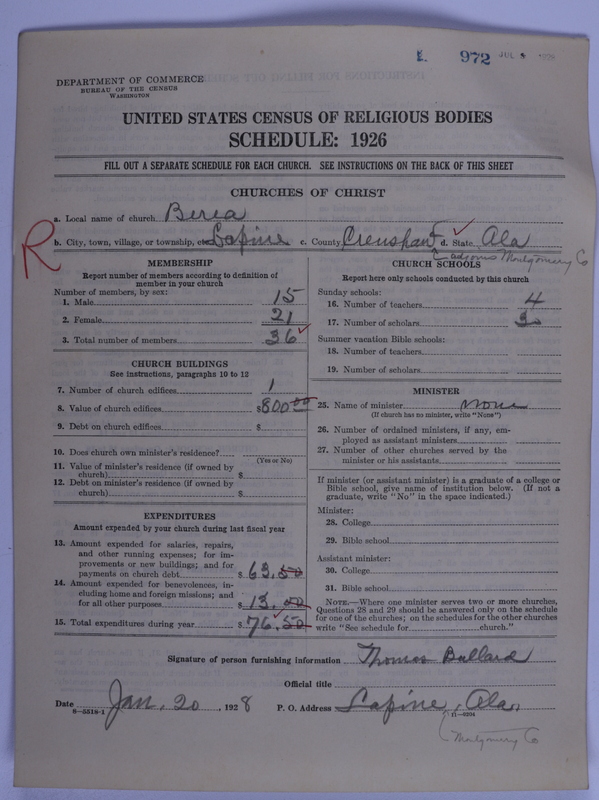 972 JUL
DEPARTMENT OF COMMERCE
BUREAU OF THE CENSUS
WASHINGTON
UNITED STATES CENSUS OF RELIGIOUS BODIES
SCHEDULE: 1926
FILL OUT A SEPARATE SCHEDULE FOR EACH CHURCH. SEE INSTRUCTIONS ON THE BACK OF THIS SHEET
CHURCHES OF CHRIST
a. Local name of church Berea
R
b. City, town, village, or township, etc. Lapine c. County Crenshaw d. State Ala
adjoins Montgomery Co
MEMBERSHIP
Report number of members according to definition of
member in your church
Number of members, by sex:
1. Male 15
2. Female 21
3. Total number of members 36
CHURCH BUILDINGS
See instructions, paragraphs 10 to 12
7. Number of church edifices 1
8. Value of church edifices $800.00
9. Debt on church edifices $
10. Does church own minister's residence?
(Yes or No)
11. Value of minister's residence (if owned by
church) $
12. Debt on minister's residence (if owned by
church) $
EXPENDITURES
Amount expended by your church during last fiscal year
13. Amount expended for salaries, repairs,
and other running expenses; for im-
provements or new buildings; and for
payments on church debt $63.50
14. Amount expended for benevolences, in-
cluding home and foreign missions; and
for all other purposes $13.00
15. Total expenditures during year $76.50
CHURCH SCHOOLS
Report here only schools conducted by this church
Sunday schools:
16. Number of teachers 4
17. Number of scholars 30
Summer vacation Bible schools:
18. Number of teachers
19. Number of scholars
MINISTER
25. Name of minister None
(If church has no minister, write "None")
26. Number of ordained ministers, if any, em-
ployed as assistant ministers
27. Number of other churches served by the
minister or his assistants
If minister (or assistant minister) is a graduate of a college or
Bible school, give name of institution below. (If not a
graduate, write "No" in the space indicated.)
Minister:
28. College
29. Bible school
Assistant minister:
30. College
31. Bible school
NOTE.—Where one minister serves two or more churches,
Questions 28 and 29 should be answered only on the schedule
for one of the churches; on the schedules for the other churches
write "See schedule for church."
Signature of person furnishing information Thomas Bullard
Official title
Date Jan. 20, 1928 P. O. Address Lapine, Ala.
8—5518-1 11—9204
Montgomery Co